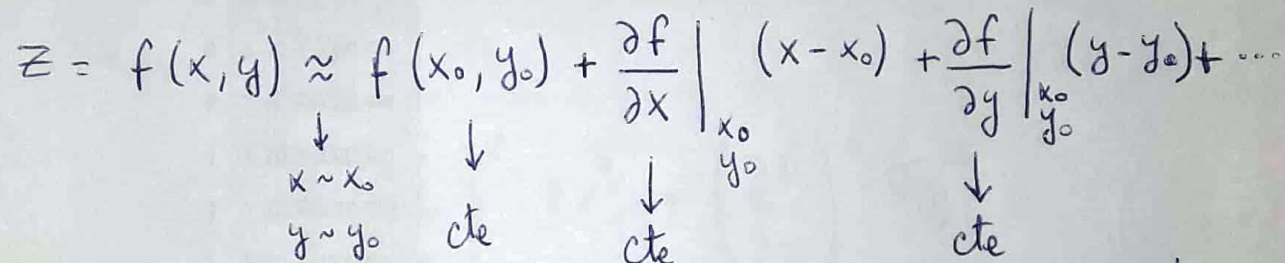 z = f(x,y) ≈ f(x₀,y₀) + ∂f/∂x |x₀ y₀ (x-x₀) + ∂f/∂y |x₀ y₀ (y-y₀) + ...
↓ ↓ ↓ ↓
x ~ x₀
y ~ y₀ cte cte cte